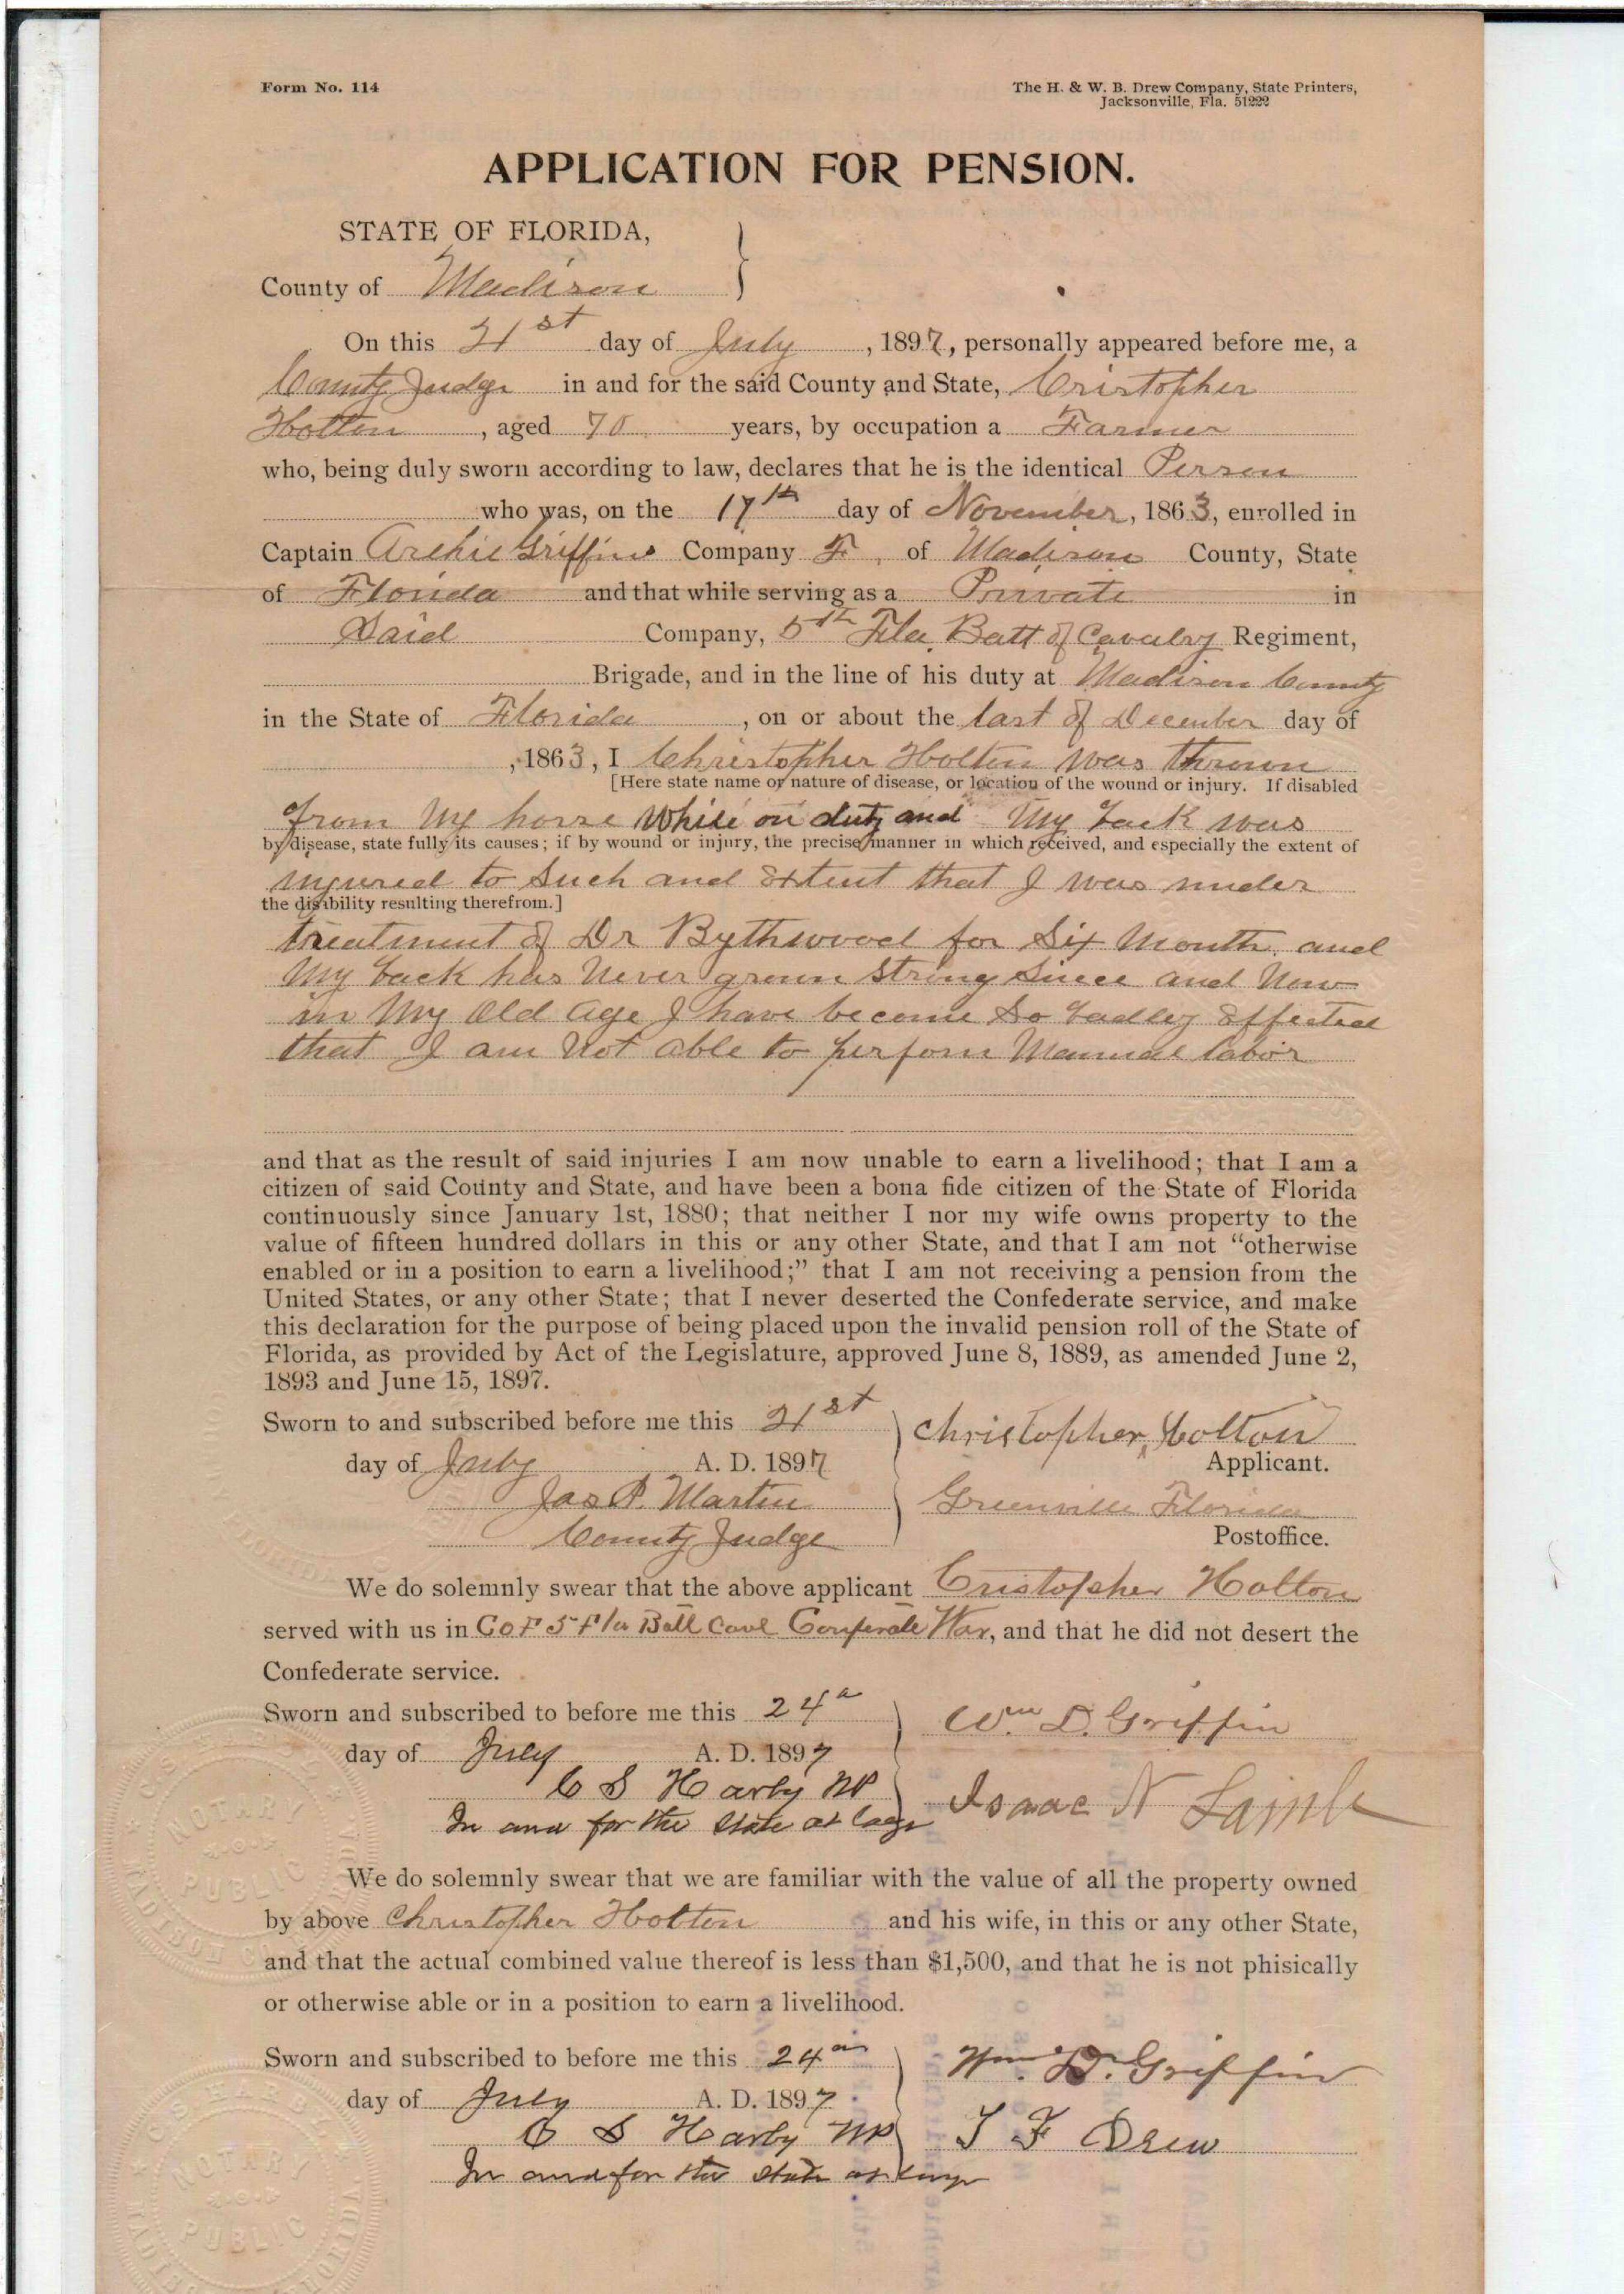 Form No. 114
The H. & W. B. Drew Company, State Printers,
Jacksonville, Fla. 51222
APPLICATION FOR PENSION.
STATE OF FLORIDA,
County of Madison
On this 21st day of July, 1897, personally appeared before me, a
County Judge in and for the said County and State, Cristopher
Holton, aged 70 years, by occupation a Farmer
who, being duly sworn according to law, declares that he is the identical Person
who was, on the 17th day of November, 1863, enrolled in
Captain Archie Griffins Company F, of Madison County, State
of Florida and that while serving as a Private in
Said Company, 5th Fla. Batt of Cavalry Regiment,
Brigade, and in the line of his duty at Madison County
in the State of Florida, on or about the last of December day of
, 1863, I Christopher Holton was thrown
[Here state name or nature of disease, or location of the wound or injury. If disabled
from my horse while on duty and my back was
by disease, state fully its causes; if by wound or injury, the precise manner in which received, and especially the extent of
injured to such and extent that I was under
the disability resulting therefrom.]
treatment of Dr Bythwood for Six Month and
my back has never grown strong since and now
in my old age I have become so badley effected
that I am not able to perform manual labor
and that as the result of said injuries I am now unable to earn a livelihood; that I am a
citizen of said County and State, and have been a bona fide citizen of the State of Florida
continuously since January 1st, 1880; that neither I nor my wife owns property to the
value of fifteen hundred dollars in this or any other State, and that I am not “otherwise
enabled or in a position to earn a livelihood;” that I am not receiving a pension from the
United States, or any other State; that I never deserted the Confederate service, and make
this declaration for the purpose of being placed upon the invalid pension roll of the State of
Florida, as provided by Act of the Legislature, approved June 8, 1889, as amended June 2,
1893 and June 15, 1897.
Sworn to and subscribed before me this 21st
Christopher Holton
day of July A. D. 1897
Applicant.
Jas P. Martin
Greenville Florida
County Judge
Postoffice.
We do solemnly swear that the above applicant Cristopher Holton
served with us in Co F 5 Fla Batt Cavl Conferate War, and that he did not desert the
Confederate service.
Sworn and subscribed to before me this 24
Wm D. Griffin
day of July A. D. 1897
C S Harby NP
Isaac N
In and for the State at Large
We do solemnly swear that we are familiar with the value of all the property owned
by above Christopher Holton and his wife, in this or any other State,
and that the actual combined value thereof is less than $1,500, and that he is not phisically
or otherwise able or in a position to earn a livelihood.
Sworn and subscribed to before me this 24
Wm. D. Griffin
day of July A. D. 1897
C S Harby NP
T F Drew
In and for the State at Large
C S HARBY
NOTARY
PUBLIC
MADISON
C S HARBY
NOTARY
PUBLIC
FLORIDA